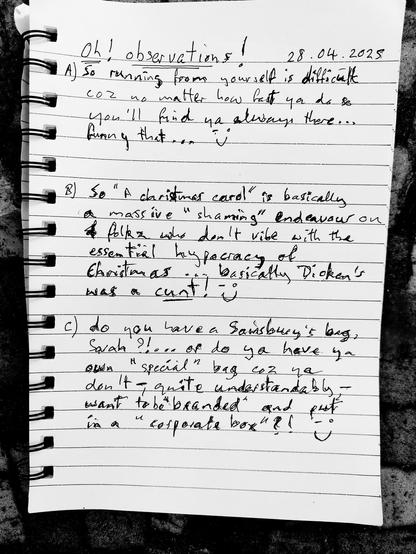 Oh! observations! 28.04.2025
A) So running from yourself is difficult
coz no matter how fast ya do so
you'll find ya always there...
funny that...
B) So "A christmas carol" is basically
a massive "shaming" endeavour on
folkz who don't vibe with the
essential hypocracy of
Christmas ... basically Dicken's
was a cunt!
C) do you have a Sainsbury's bag,
Sarah?!.... or do ya have ya
own "special" bag coz ya
don't - quite understandably -
want to be "branded" and put
in a "corporate box"?!